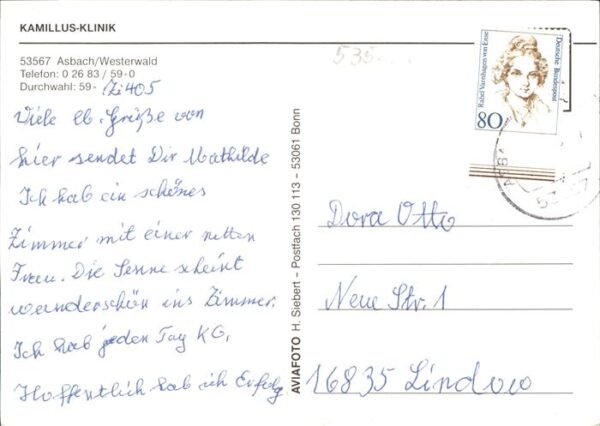 KAMILLUS-KLINIK
53567 Asbach/Westerwald
Telefon: 0 26 83 / 59-0
Durchwahl: 59- Zi 405
Viele lb. Grüße von
hier sendet Dir Mathilde
Ich hab ein schönes
Zimmer mit einer netten
Frau. Die Sonne scheint
wunderschön ins Zimmer.
Ich hab jeden Tag KG,
Hoffentlich hab ich Erfolg
AVIAFOTO H. Siebert – Postfach 130 113 – 53061 Bonn
535
Rahel Varnhagen von Ense
Deutsche Bundespost
80
Dora Otto
Neue Str. 1
16835 Lindow